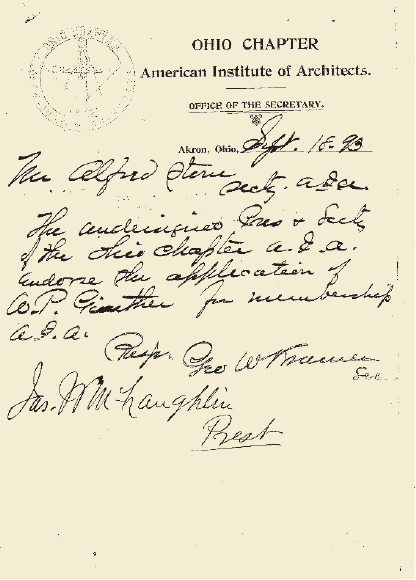 OHIO CHAPTER
American Institute of Architects.
OFFICE OF THE SECRETARY.
Akron, Ohio, Sept. 18-93
Mr Alfred Stone
Secty. A.I.A.
The undersigned Pres & Secty
of the Ohio Chapter A.I.A.
endorse the application of
W.P. Ginther for membership
A.I.A.
Resp. Geo W Kramer
Sec
Jas. W McLaughlin
Prest